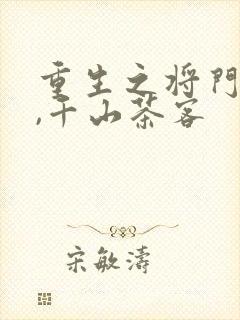 重生之将门
,千山茶客
宋敏涛